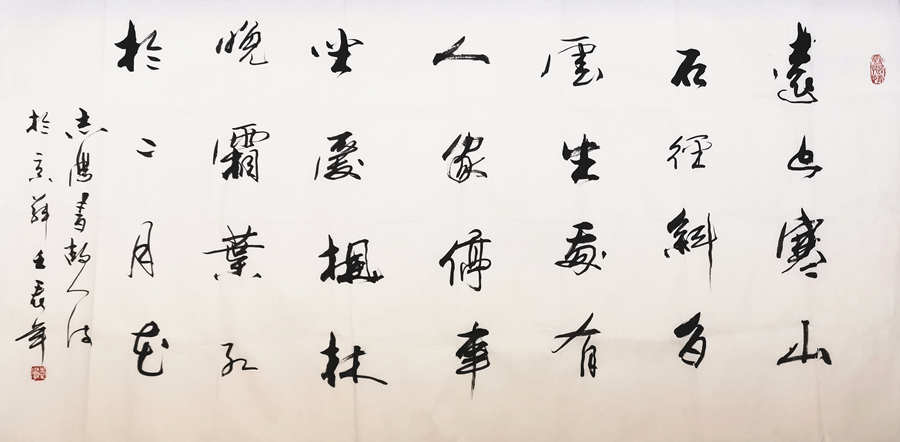 遠上寒山
石徑斜白
雲生處有
人家停車
坐愛楓林
晚霜葉紅
於二月花
志書人诗
於京華壬辰年